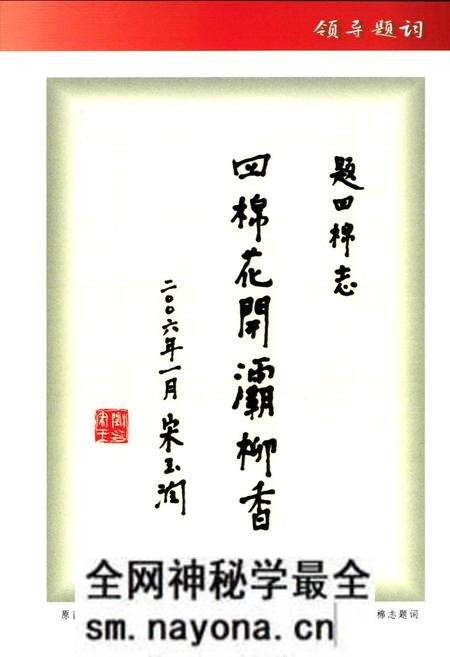 领导题词
题四棉志
四棉花開灞柳香
二〇〇六年一月 宋玉润
原
棉志题词
全网神秘学最全
sm.nayona.cn